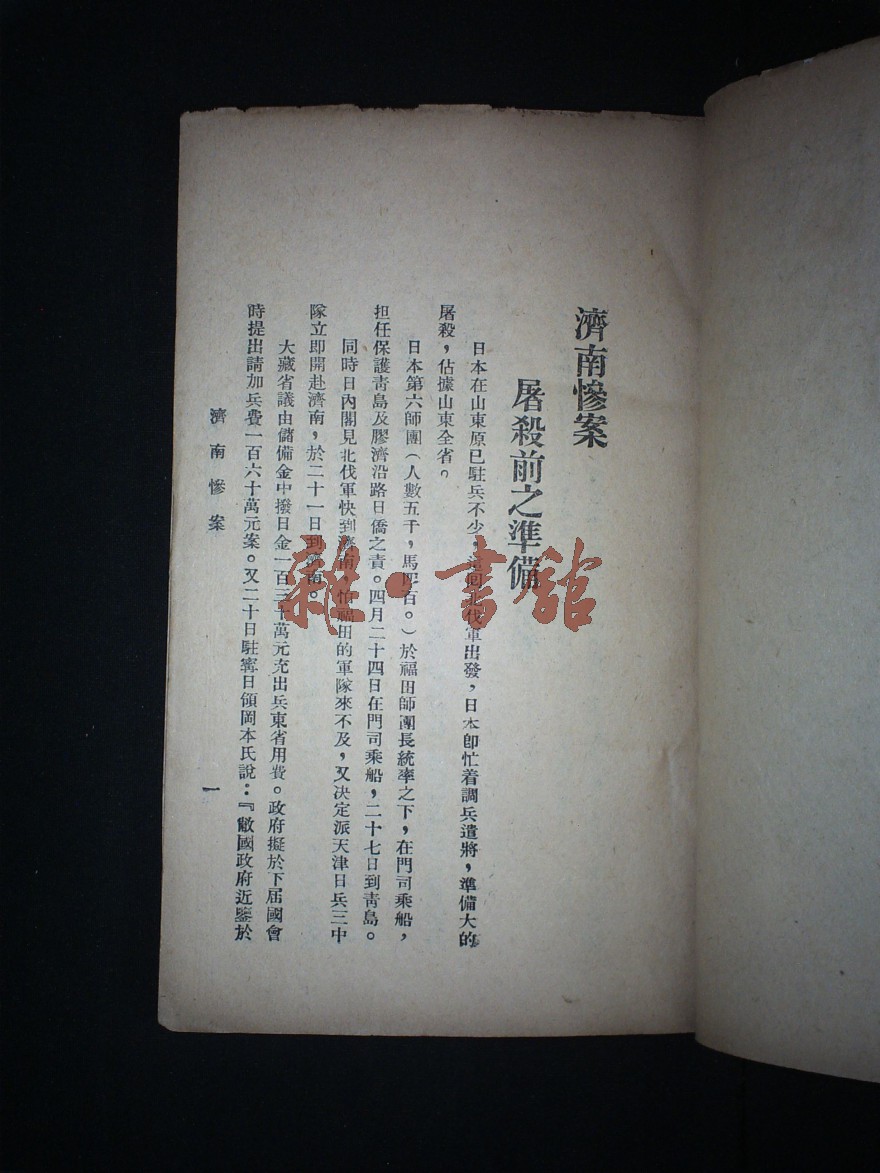 濟南慘案
屠殺前之準備
日本在山東原已駐兵不少，這回北伐軍出發，日本卽忙着調兵遣將，準備大的
屠殺，佔據山東全省。
日本第六師團（人數五千，馬四百。）於福田師團長統率之下，在門司乘船，
担任保護靑島及膠濟沿路日僑之責。四月二十四日在門司乘船，二十七日到靑島。
同時日內閣見北伐軍快到濟南，怕福田的軍隊來不及，又决定派天津日兵三中
隊立即開赴濟南，於二十一日到濟南。
大藏省議由儲備金中撥日金一百三十萬元充出兵東省用費。政府擬於下屆國會
時提出請加兵費一百六十萬元案。又二十日駐寗日領岡本氏說：『敝國政府近鑒於
濟南慘案
一
雜·書館